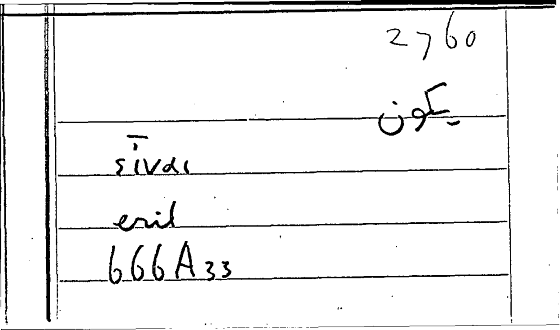 2760
يكون
εἶναι
erit
666A33